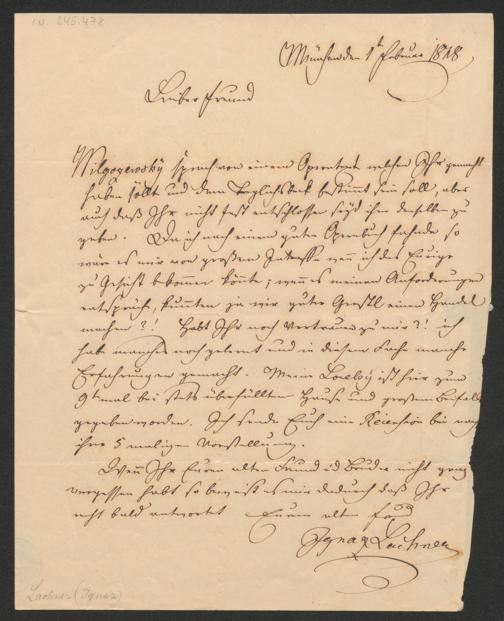 I.N. 245.478
München den 1t Februar 1848
Lieber Freund
Wilgozewsky sprach von einem Operntext welchen Ihr gemacht
haben sollt und dem bestimmt sein soll, aber
auch daß Ihr nicht fest entschlossen seyd ihm denselben zu
geben. Da ich nach einem guten Opernbuch fahnde so
wäre es mir von großem Interesse wenn ich das Eurige
zu Gesicht bekommen könnte; wenn es meinen Anforderungen
entspräche, könnten ja wir guter einen Handel
machen?! Habt Ihr noch Vertrauen zu mir?! ich
habe manches noch gelernt und in diesem Fache manche
Erfahrungen gemacht. Meine Loreley ist hier zum
9tmal bei stets überfülltem Hause und großem Beifalle
gegeben worden. Ich sende Euch eine Recension bei nach
ihrer 5 maligen Vorstellung.
Wenn Ihr Euren alten Freund u Bruder nicht ganz
vergessen habt so beweist es mir dadurch daß Ihr
recht bald antwortet Eurem alten Freund
Ignaz Lachner
Lachner (Ignaz)